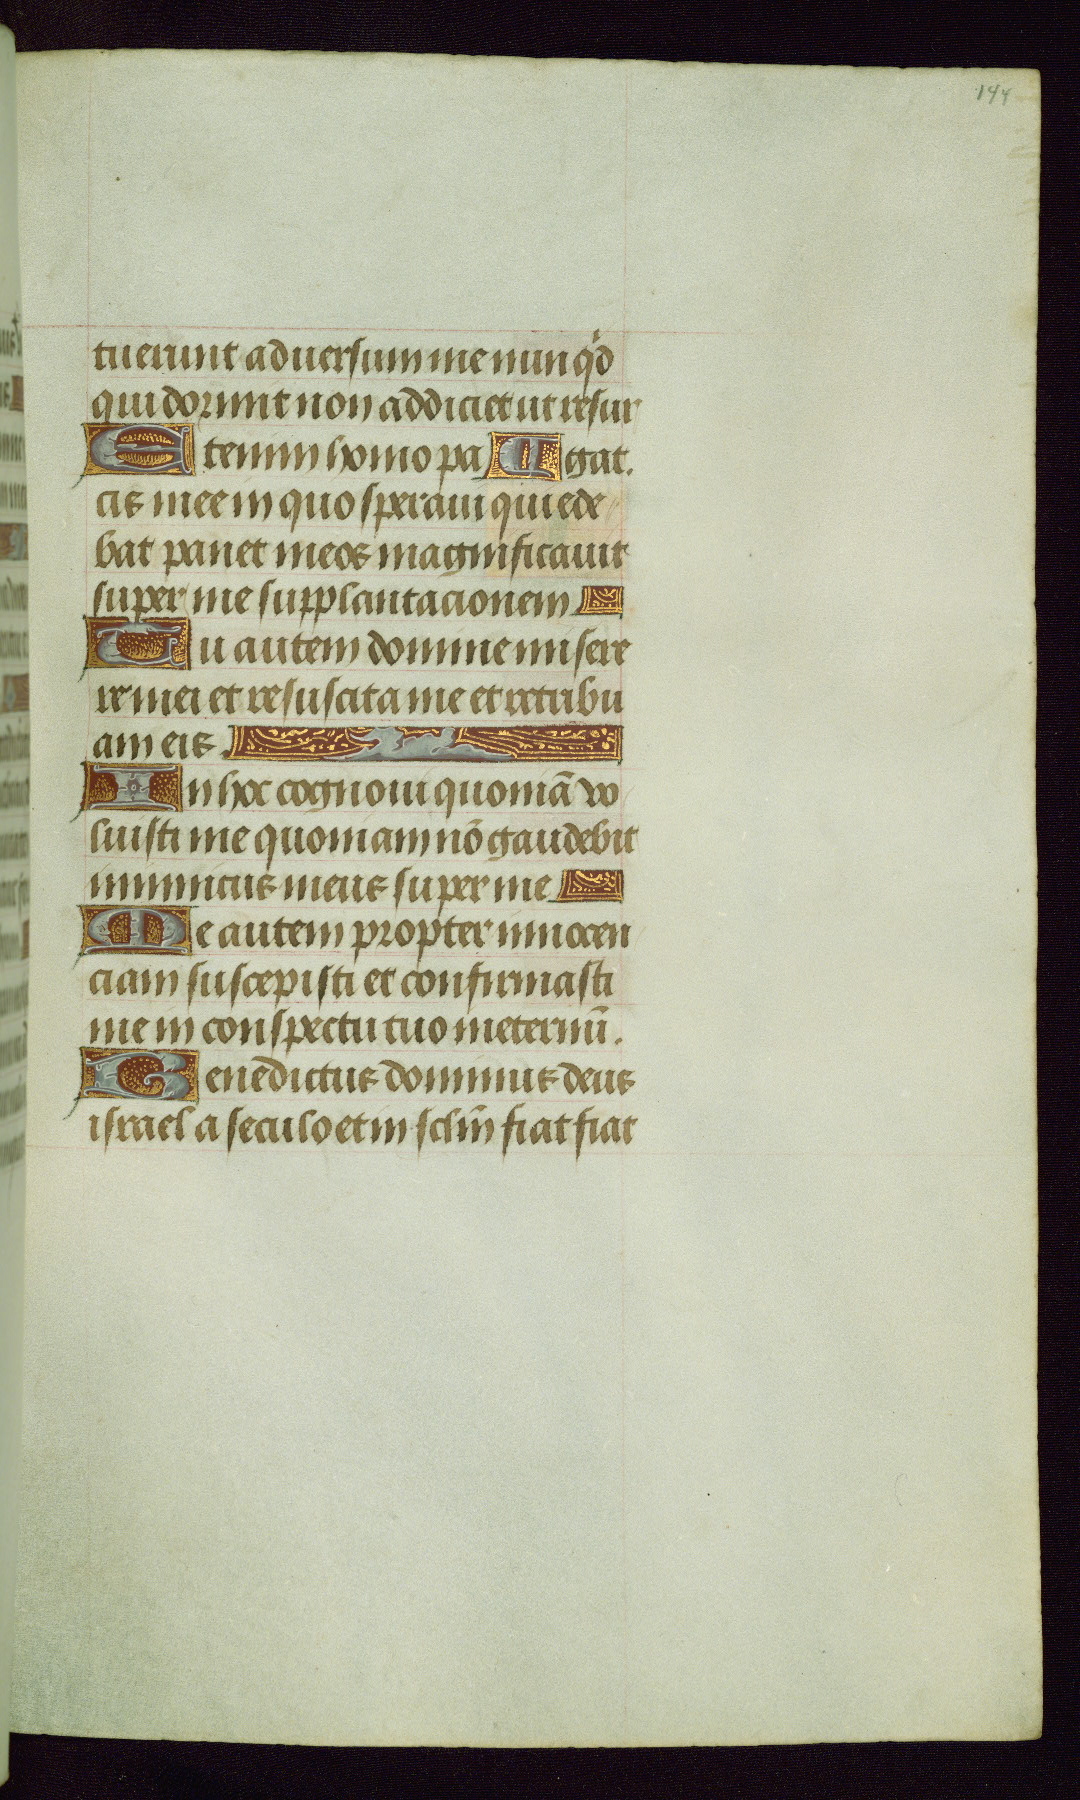 144
tuerunt aduersum me nunq̇d
qui dormit non addiciet ut resur
Etenim homo pa gat.
cis mee in quo speraui qui ede
bat panet meos magnificauit
super me supplantacionem
Tu autem domine misere
re mei et resuscita me et retribu
am eis.
In hoc cognoui quoniā vo
luisti me quoniam nō gaudebit
inimicus meus super me
Me autem propter innocen
ciam suscepisti et confirmasti
me in conspectu tuo in eternū.
Benedictus dominus deus
israel a seculo et in sclm̄ fiat fiat